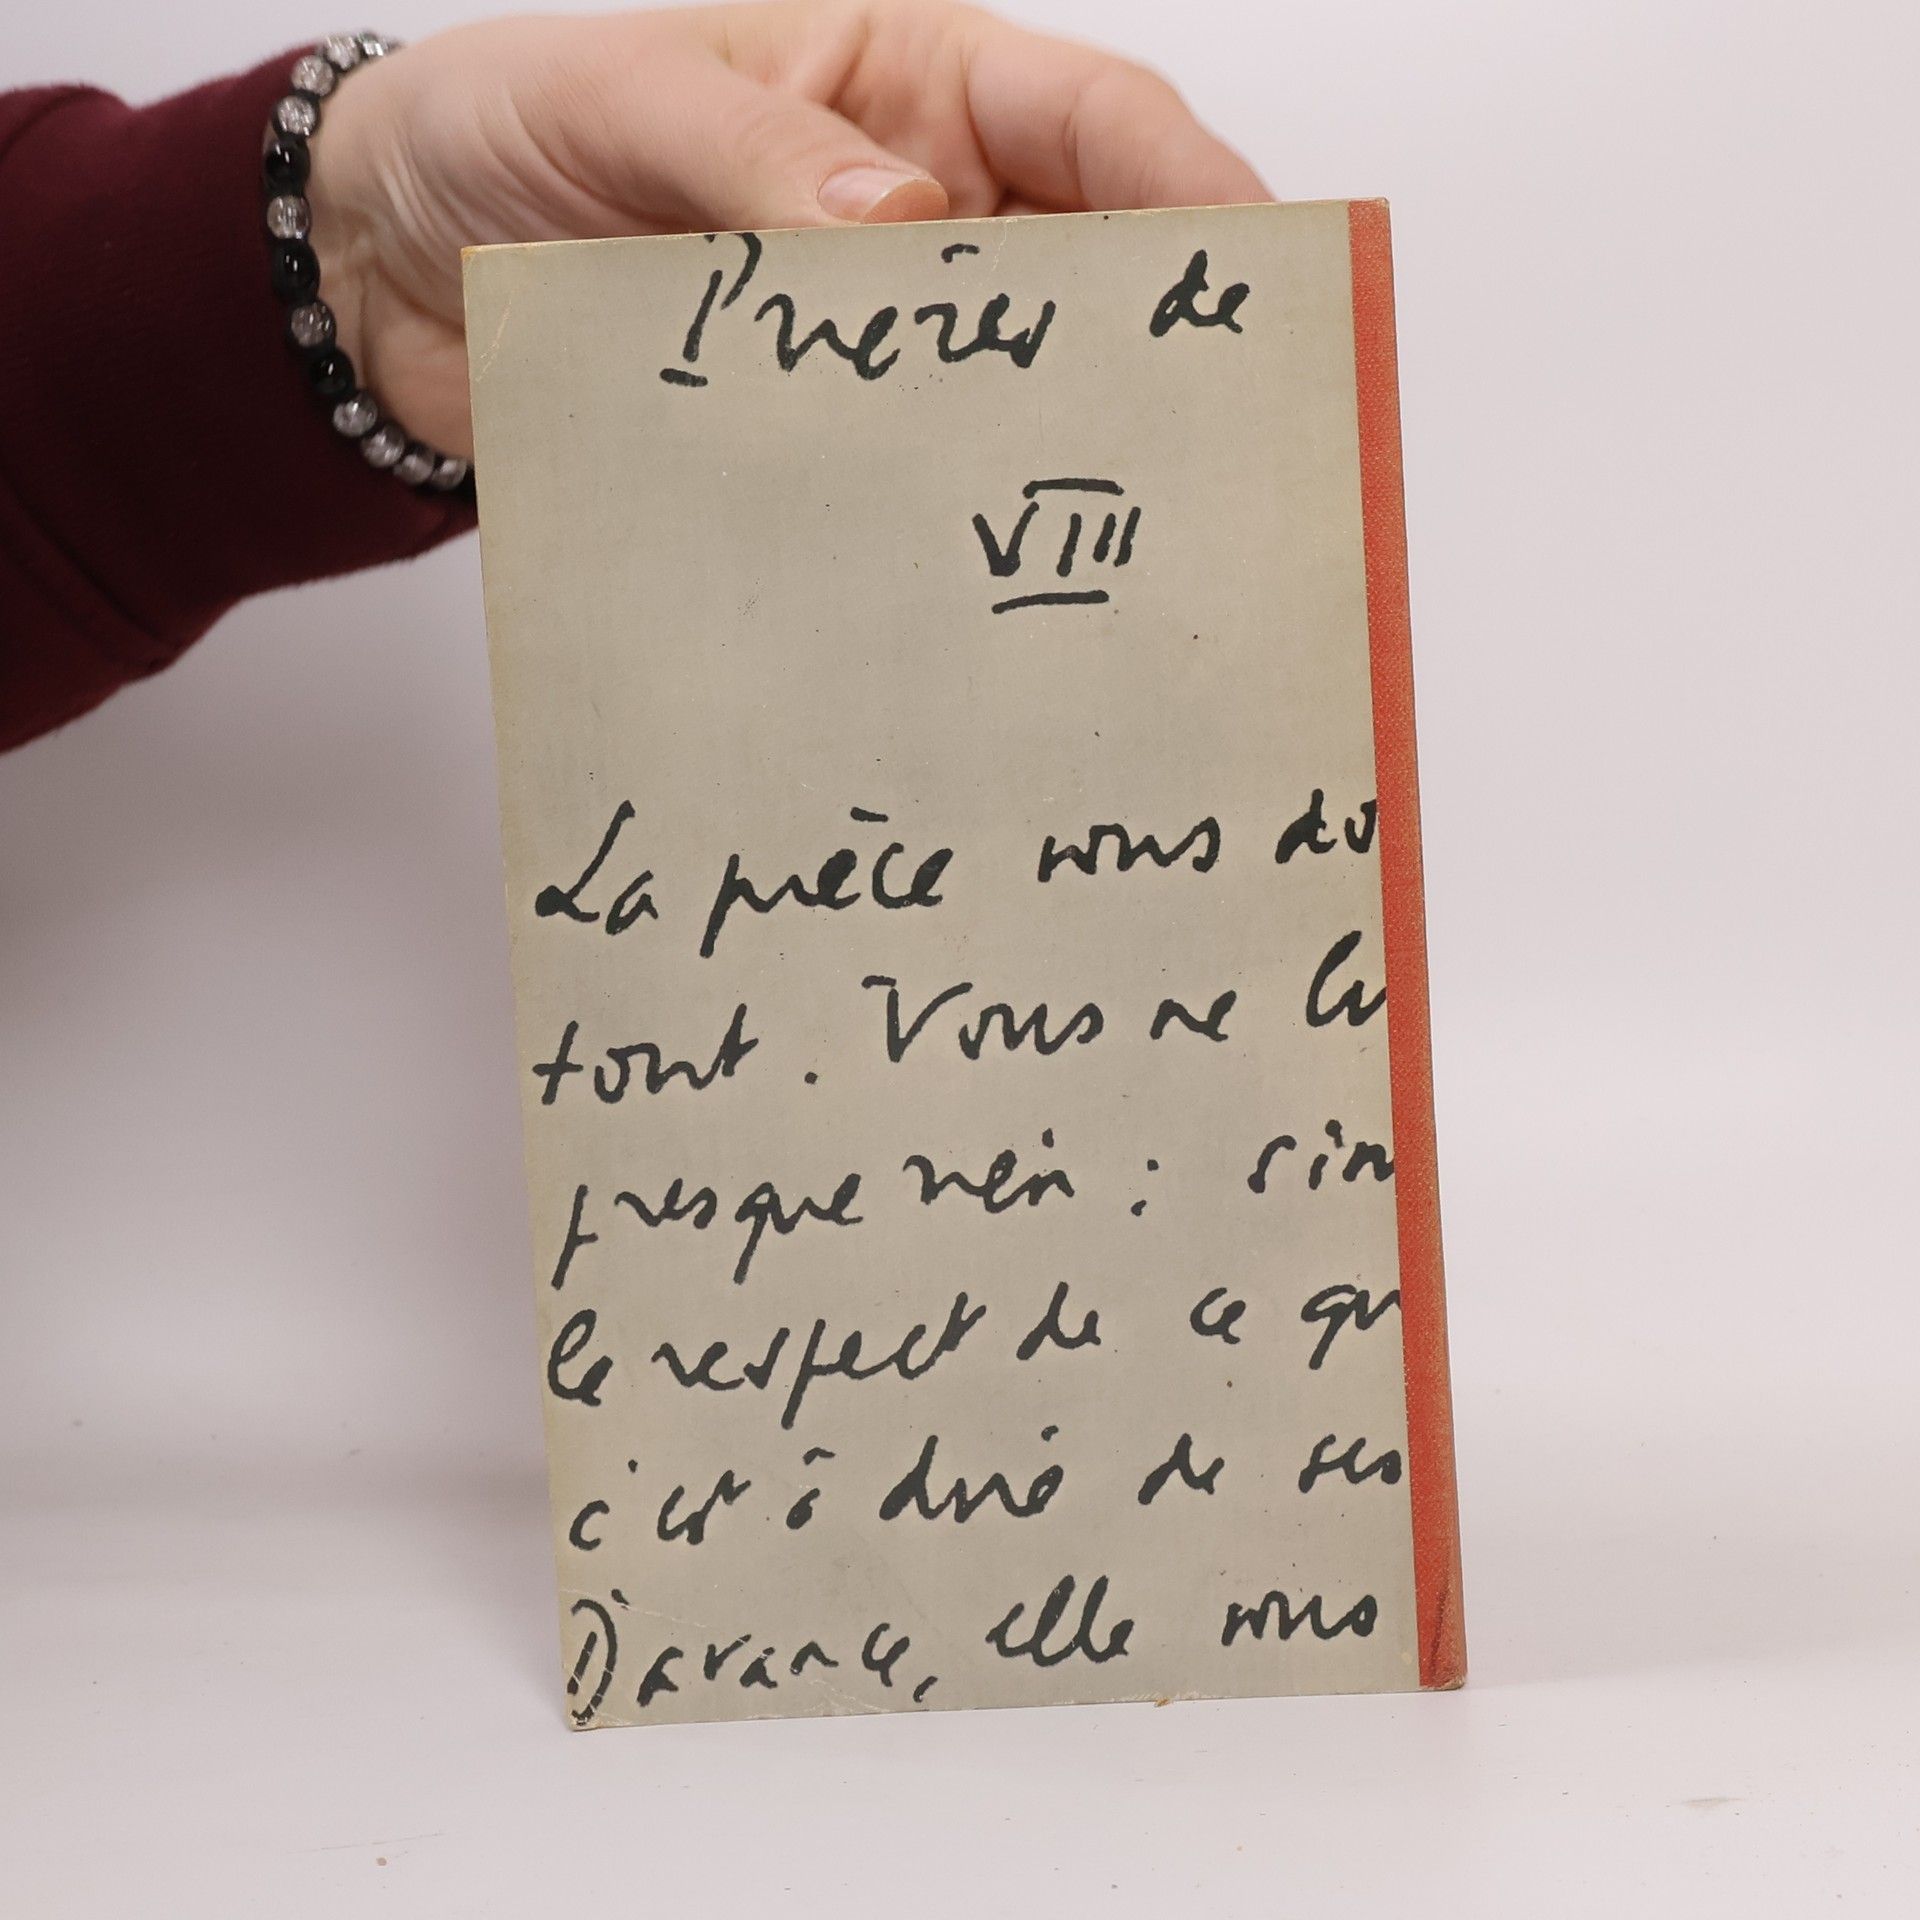 Prières de
VIII
La pièce vous do
tout. Vous ne lu
presque rien : sin
le respect de ce qu
c'est à dire de ses
D'avance, elle vous